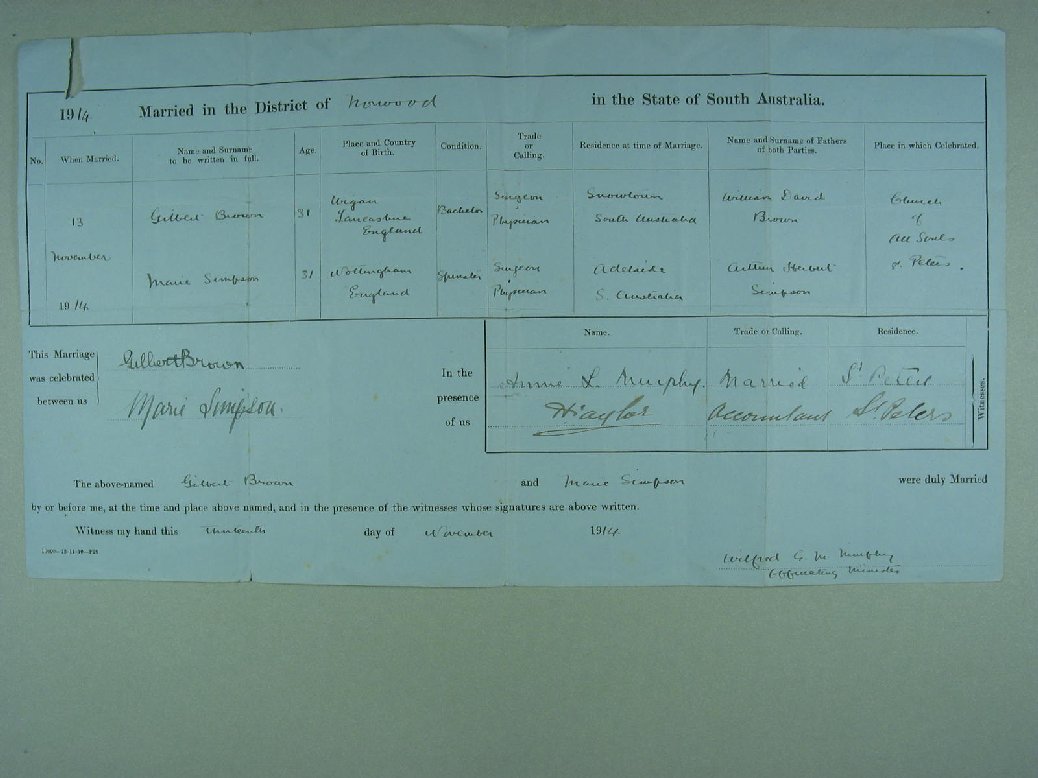 1914 Married in the District of Norwood in the State of South Australia.
No. When Married. Name and Surname to be written in full. Age. Place and Country of Birth. Condition. Trade or Calling. Residence at time of Marriage. Name and Surname of Fathers of both Parties. Place in which Celebrated.
13 Gilbert Brown 31 Wigan Lancashire England Bachelor Surgeon Physician Snowtown South Australia William David Brown Church of All Souls
November
1914 Marie Simpson 31 Nottingham England Spinster Surgeon Physician Adelaide S. Australia Arthur Herbert Simpson St Peters.
Name. Trade or Calling. Residence.
This Marriage was celebrated between us
Gilbert Brown
Marie Simpson.
In the presence of us
Annie L. Murphy. Married St Peters
Accountant St. Peters
Witnesses.
The above-named Gilbert Brown and Marie Simpson were duly Married
by or before me, at the time and place above named, and in the presence of the witnesses whose signatures are above written.
Witness my hand this thirteenth day of November 1914
Wilfred G. M. Murphy
Officiating Minister